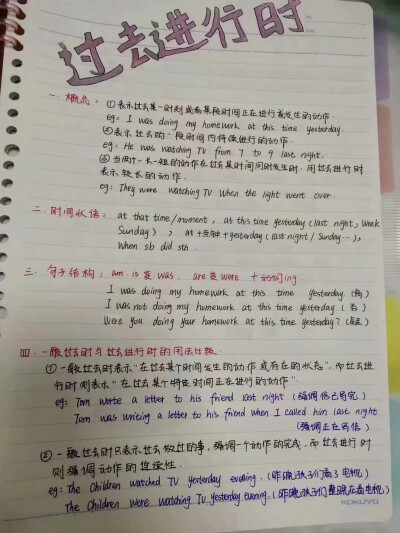 过去进行时
一. 概念: ①表示过去某一时刻或者某段时间正在进行或发生的动作.
eg: I was doing my homework at this time yesterday.
②表示过去的一段时间内持续进行的动作.
eg: He was watching TV from 7 to 9 last night.
③当两个一长一短的动作在过去某时间同时发生时, 用过去进行时
表示较长的动作.
eg: They were watching TV when the light went over.
二. 时间状语: at that time/moment, at this time yesterday (last night, week
Sunday), at+点钟+yesterday (last night / Sunday …),
When sb did sth.
三. 句子结构: am. is变was. are变were +动词ing
I was doing my homework at this time yesterday. (肯)
I was not doing my homework at this time yesterday. (否)
Were you doing your homework at this time yesterday? (疑)
四. 一般过去时与过去进行时的用法比较
①一般过去时表示"在过去某个时间发生的动作或存在的状态", 而过去进
行时则表示"在过去某个特定时间正在进行的动作".
eg: Tom wrote a letter to his friend last night (强调信已写完)
Tom was writing a letter to his friend when I called him last night
(强调正在写信)
②一般过去时只表示过去做过的事, 强调一个动作的完成, 而过去进行时
则强调动作的连续性.
eg: The children watched TV yesterday evening. (昨晚孩子们看了电视)
The children were watching TV yesterday evening. (昨晚孩子们整晚在看电视)
KOKUYO